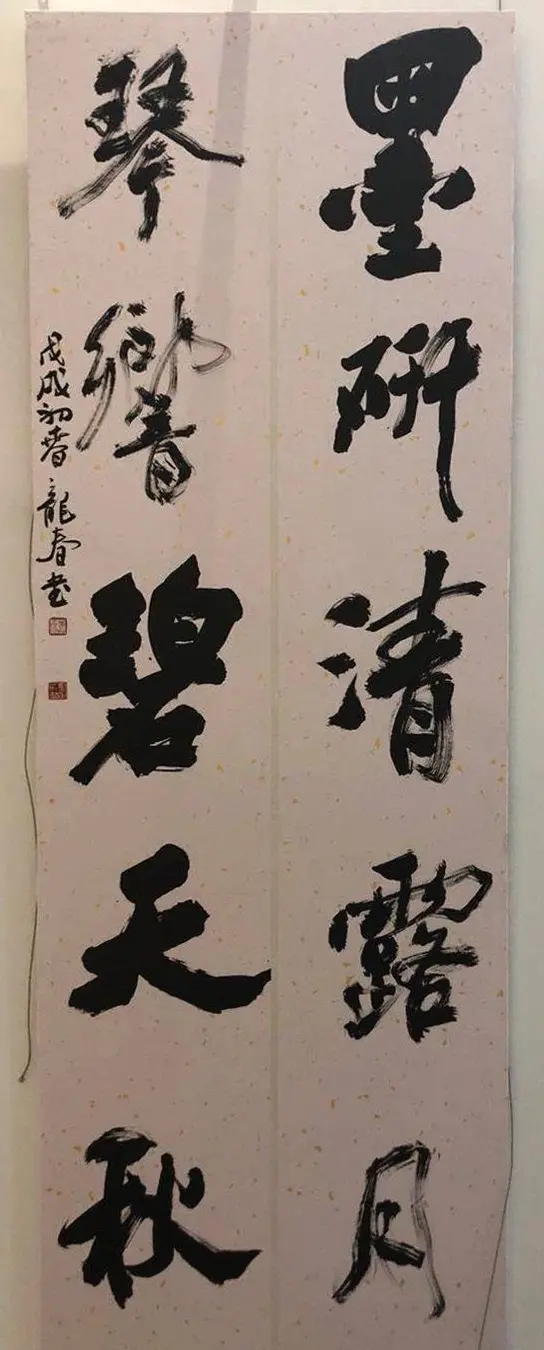 墨研清露月
琴響碧天秋
戊戌初春龍春書